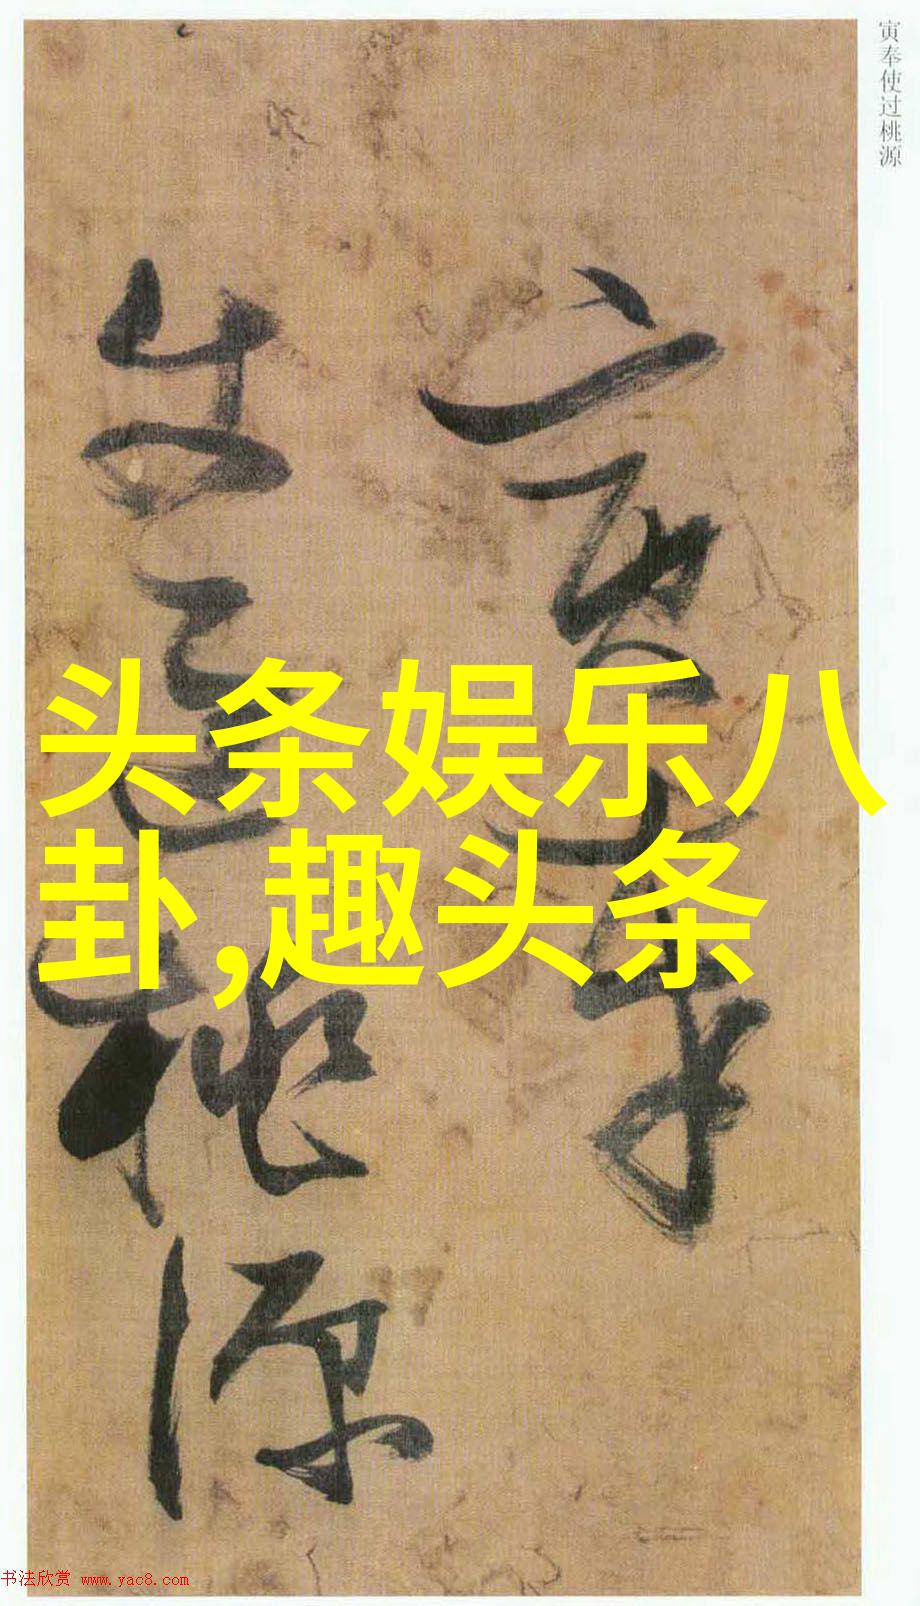 寅奉使过桃源
寅奉
使过桃源
头条娱乐八
卦,趣头条
书法欣赏 www.yac8.com